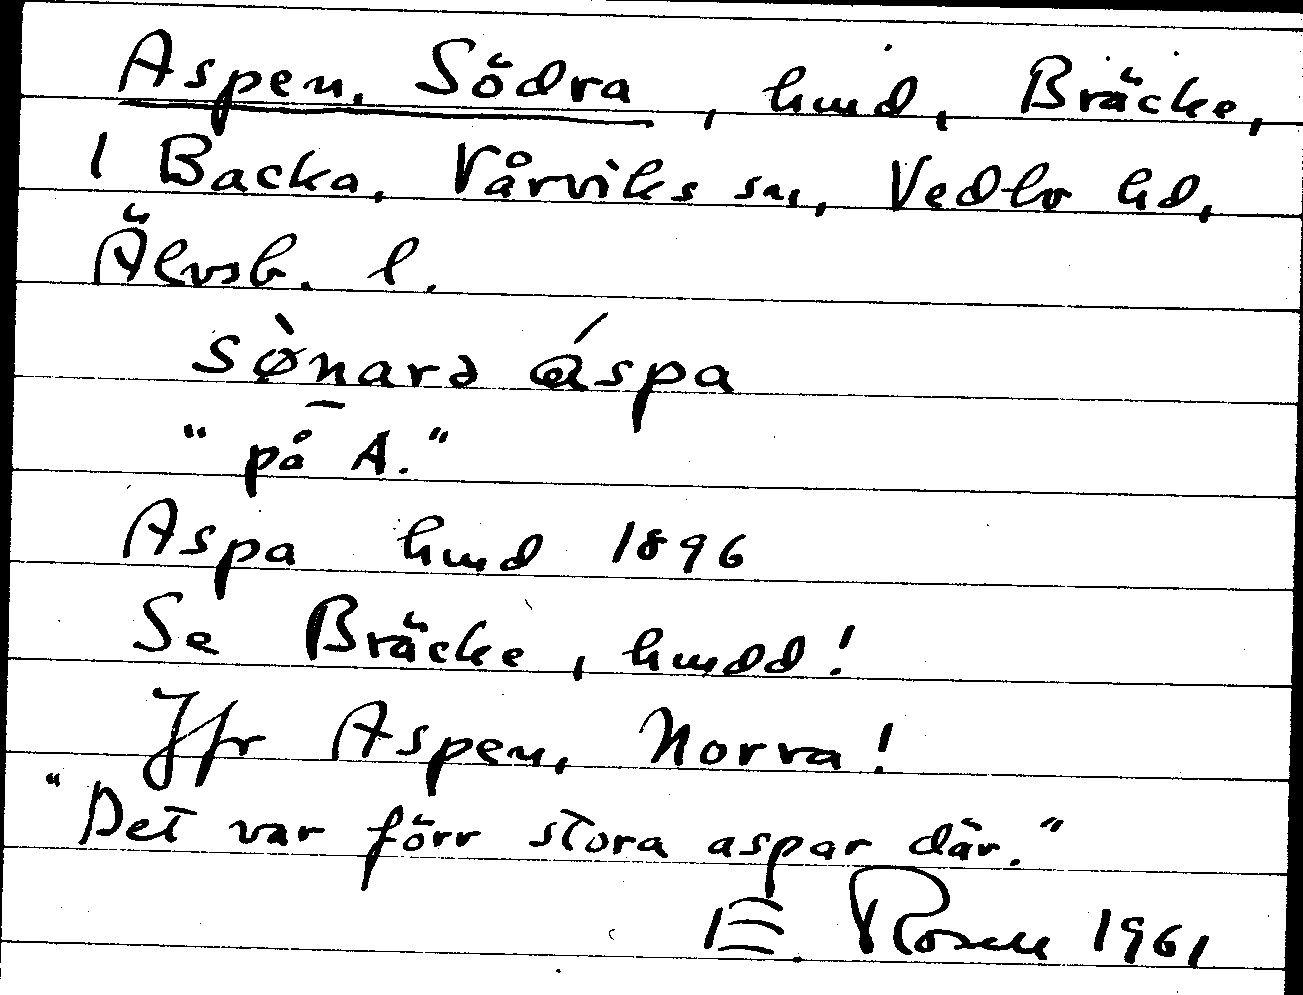 Aspen, Södra, hmd, Bräcke,
1 Backa, Vårviks sn, Vedbo hd,
Älvsb. l.
sø̀n̲arə áspa
"på A."
Aspa hmd 1896
Se Bräcke, hmdd!
Jfr Aspen, Norra!
"Det var förr stora aspar där."
E. Rosell 1961